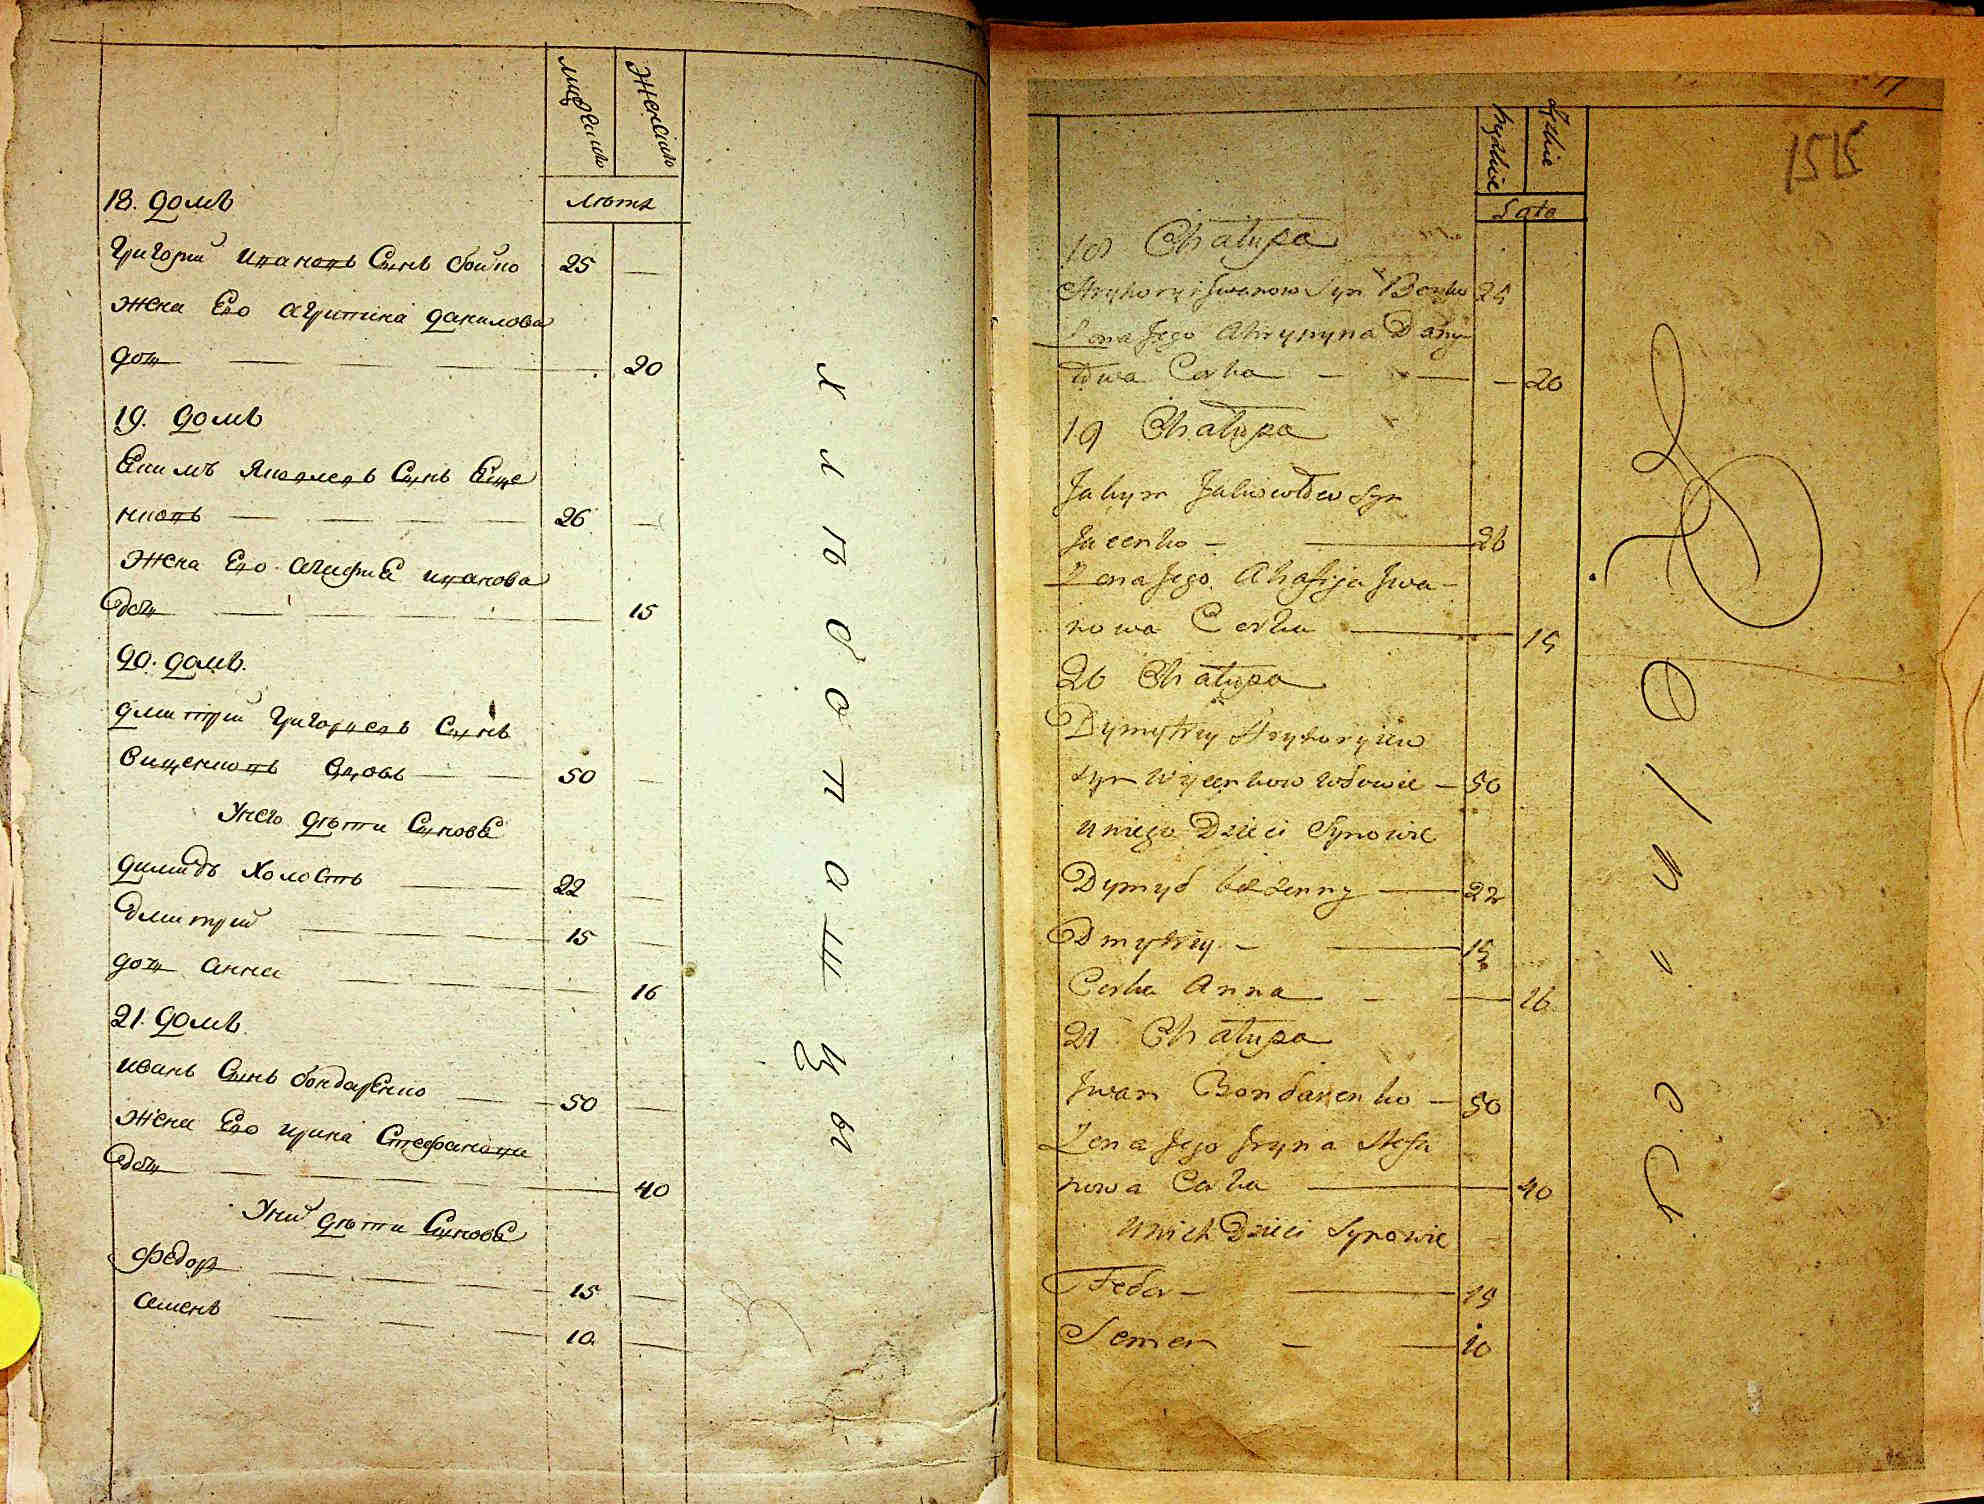 мужеска
Женска
Лѣта
18. домъ
Григорий Ивановъ Сынъ бойко 25 —
Жена Его Агрипина данилова
дощ — 20
19. домъ
Екимъ Яковлевъ Сынъ Еще
нковъ — 26 —
Жена Его Агафиа Иванова
дощ — 15
20. домъ.
дмитрий Григориевъ Сынъ
вдовъ — 50 —
Унего дѣти Сынове
димидъ холостъ — 22 —
дмитрий — 15 —
дощ анна — 16
21. домъ
иванъ Сынъ бондаренко — 50 —
Жена Его ирина Стефанова
дощ — 40
Уних дѣти Сынове
федоръ — 15 —
Семенъ — 10. —
Хлѣбопашцы
1515
Męzkie
Żeńskie
Lata
18 Chałupa
Hryhoryi Jwanow Syn Boyko 25
Żona Jego Ahrypyna Dany-
łowa Corka — — — 20
19 Chałupa
Jakym Jakowlow Syn
Jacenko — — 26
Żona Jego Ahafija Jwa-
nowa Corka — 15
20 Chałupa
Dymytry Hryhoryiew
Syn Wdowiec — 50
U niego Dzieci Synowie
Dymyd bezżenny — 22
Dmytry — — 15
Corka Anna — — 16
21 Chałupa
Jwan Bondarenko — 50
Żona Jego Jryna Stefa
nowa Corka — 40
U nich Dzieci Synowie
Fedor — — 15
Semen — — 10
Rolnicy